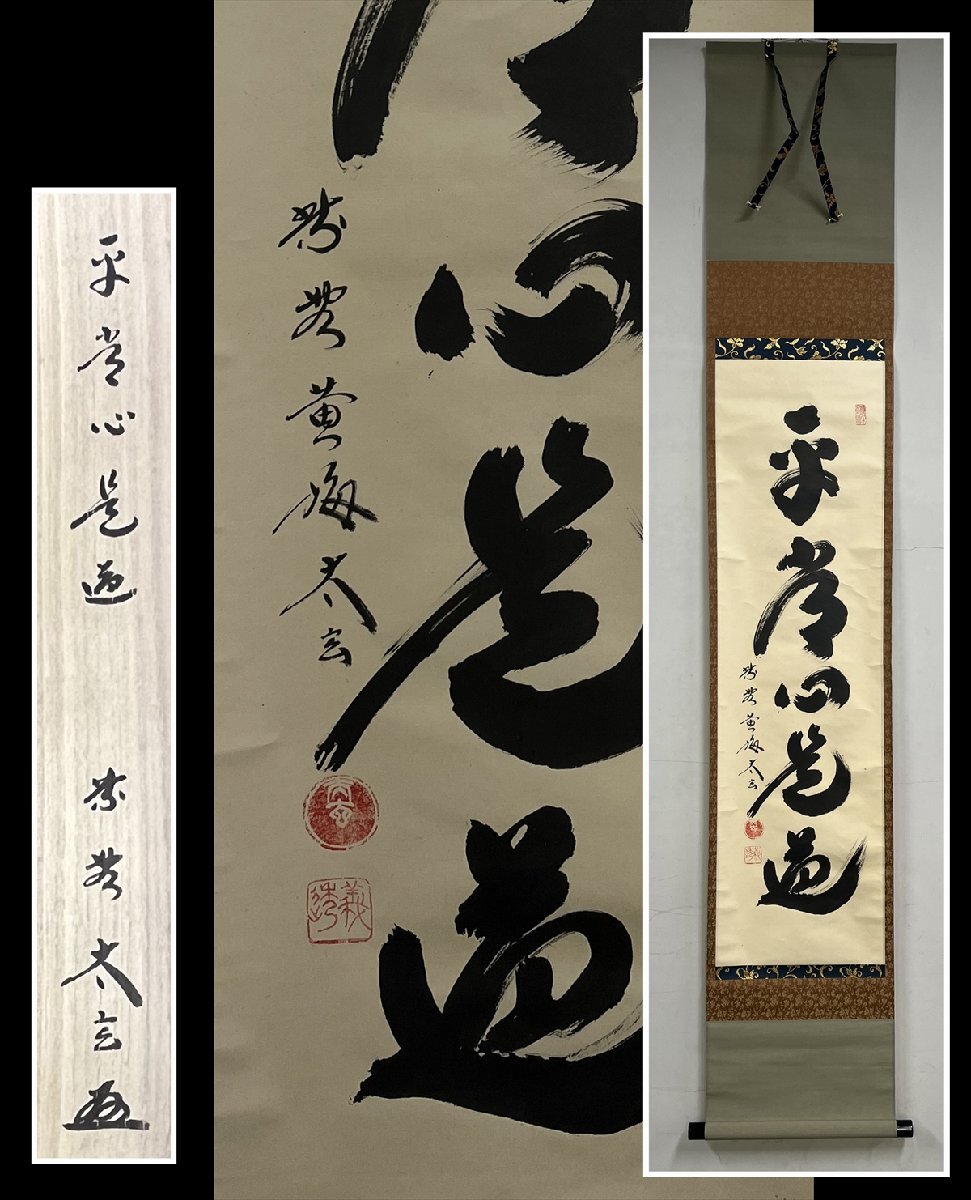 平常心是道
紫野 太玄
心是道
紫野黄梅太玄
平常心是道
紫野黄梅太玄